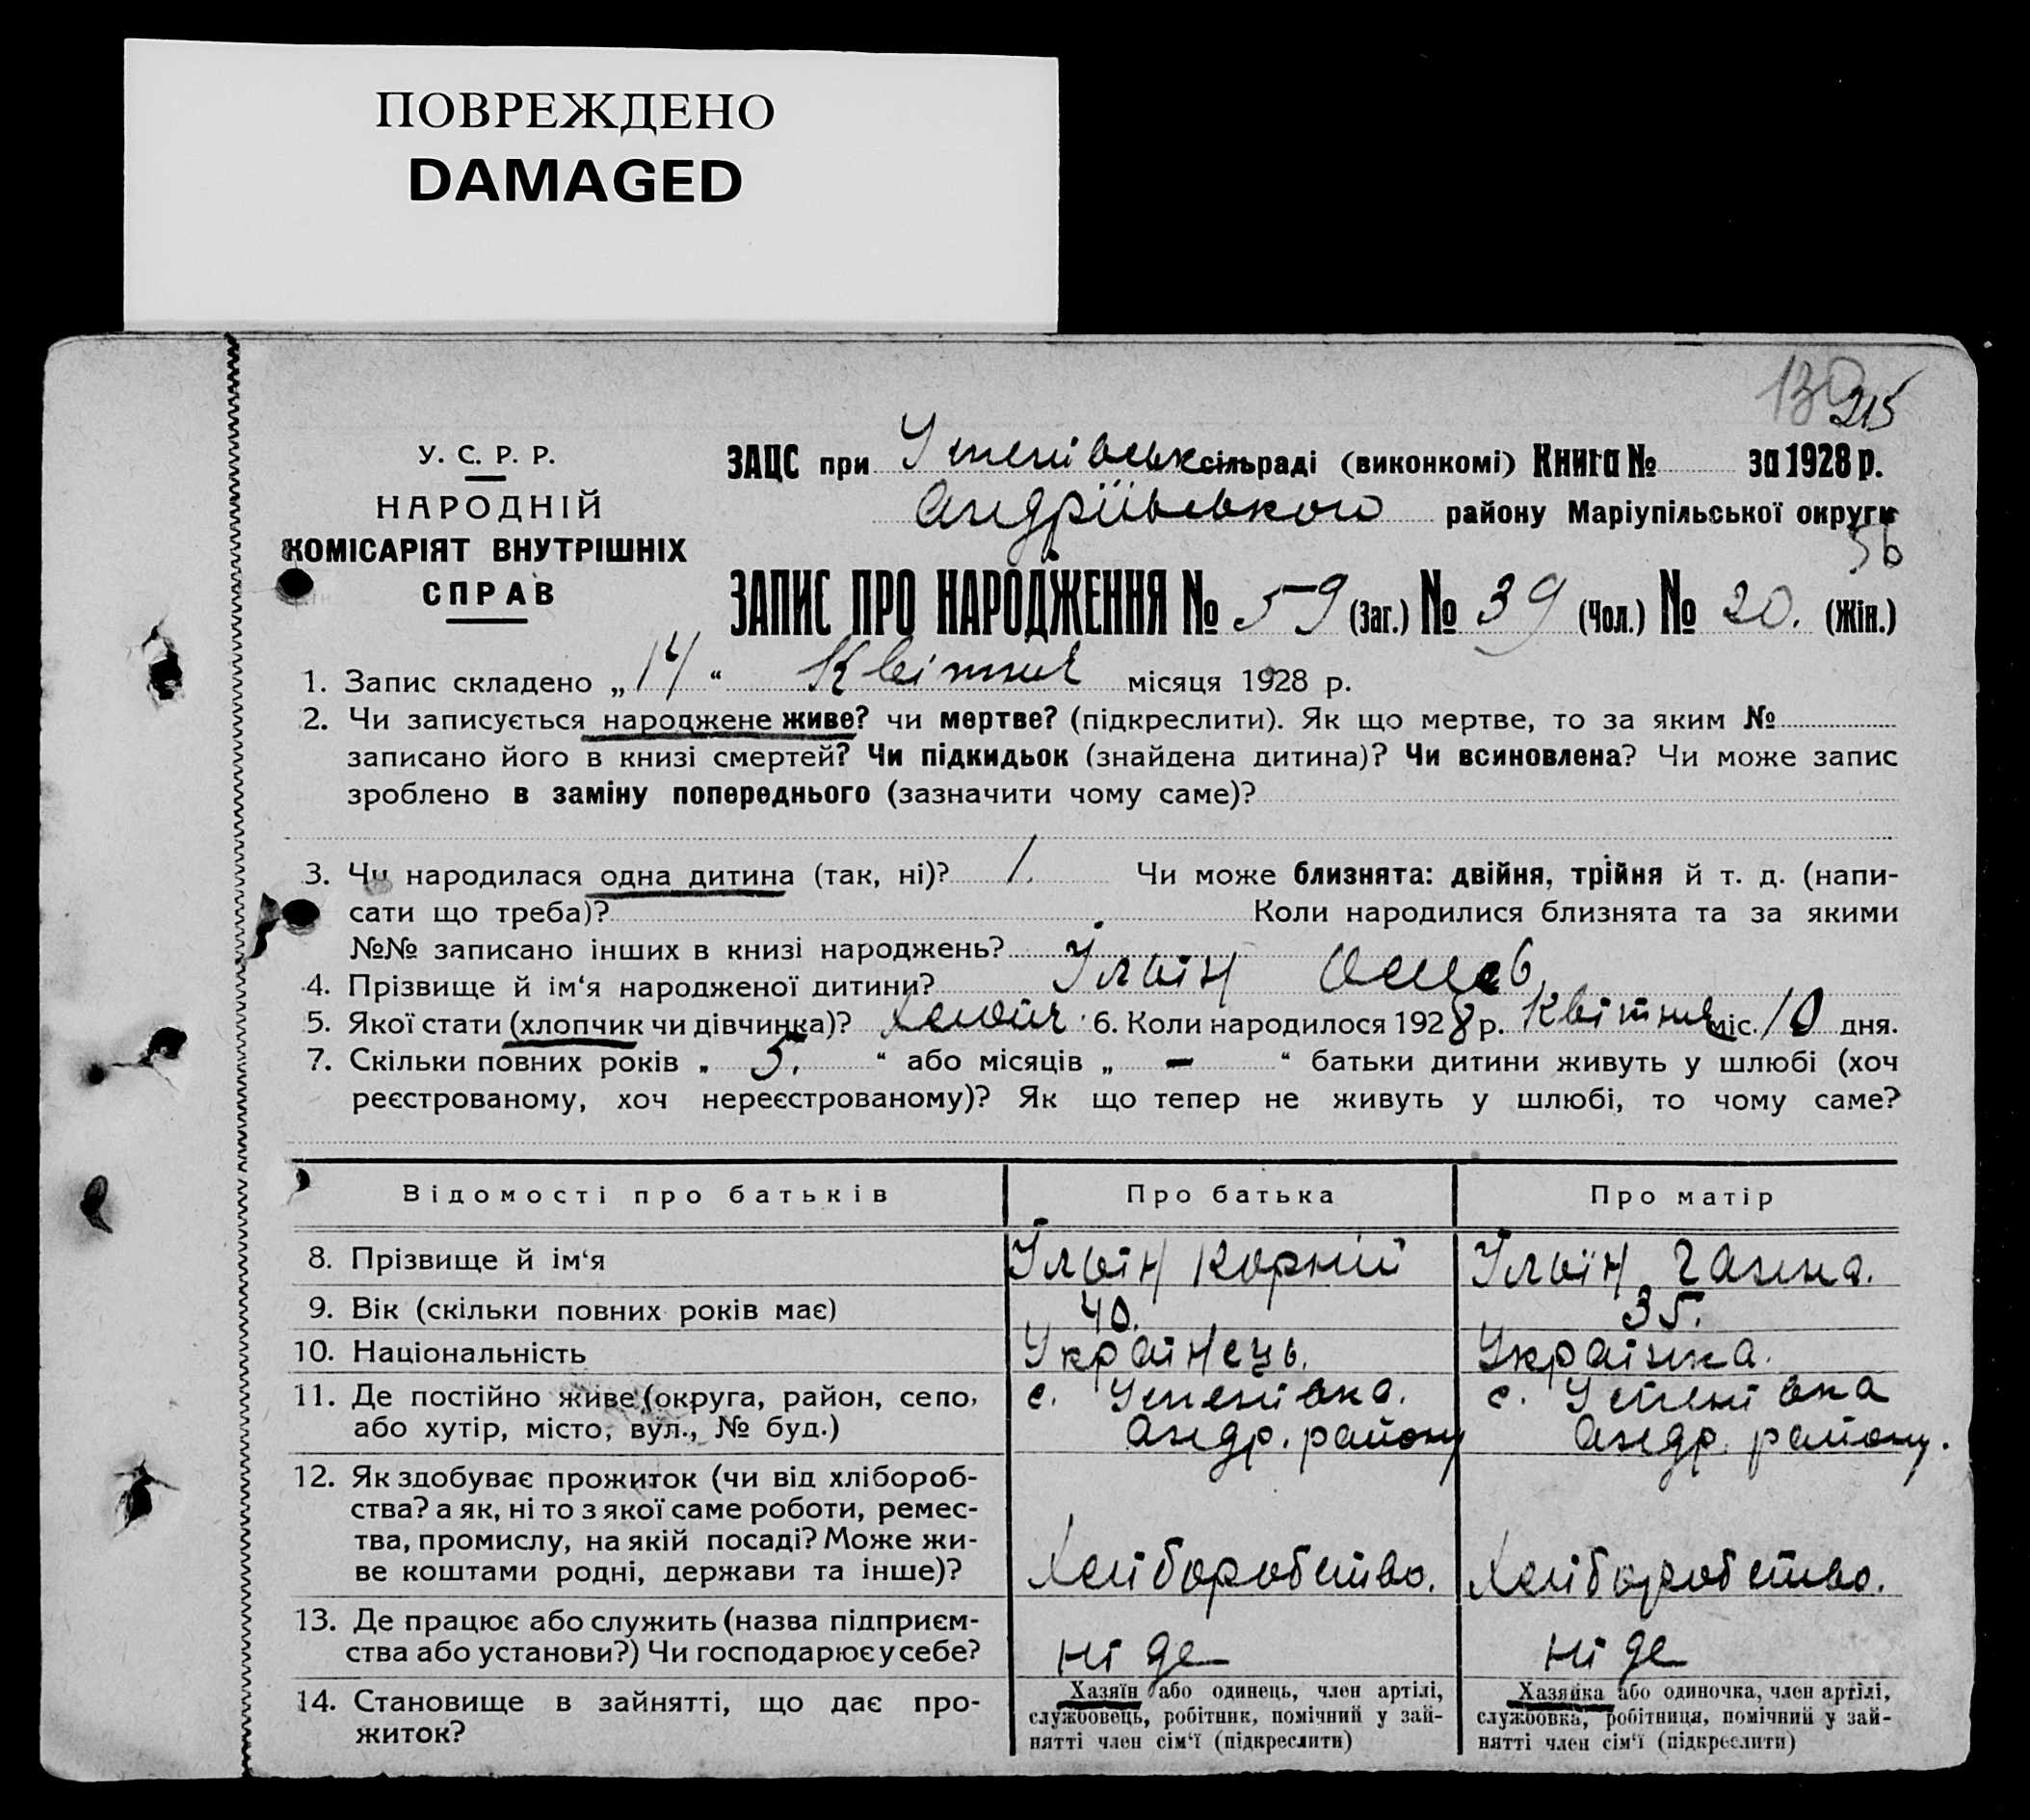 ПОВРЕЖДЕНО
DAMAGED
215
У. С. Р. Р.
НАРОДНІЙ
КОМІСАРІЯТ ВНУТРІШНІХ
СПРАВ
ЗАЦС при Успенівськ сільраді (виконкомі) Книга № за 1928 р.
Андріївського району Маріупільської округи
56
ЗАПИС ПРО НАРОДЖЕННЯ № 59 (Заг.) № 39 (Чол.) № 20. (Жін.)
1. Запис складено „14“ Квітня місяця 1928 р.
2. Чи записується народжене живе? чи мертве? (підкреслити). Як що мертве, то за яким №
записано його в книзі смертей? Чи підкидьок (знайдена дитина)? Чи всиновлена? Чи може запис
зроблено в заміну попереднього (зазначити чому саме)?
3. Чи народилася одна дитина (так, ні)? 1. Чи може близнята: двійня, трійня й т. д. (напи-
сати що треба)? Коли народилися близнята та за якими
№№ записано інших в книзі народжень?
4. Прізвище й ім‘я народженої дитини? Ільїн
5. Якої стати (хлопчик чи дівчинка)? 6. Коли народилося 1928 р. Квітня міс. 10 дня.
7. Скільки повних років „ 5. “ або місяців „ – “ батьки дитини живуть у шлюбі (хоч
реєстрованому, хоч нереєстрованому)? Як що тепер не живуть у шлюбі, то чому саме?
Відомості про батьків Про батька Про матір
8. Прізвище й ім‘я Ільїн Корній Ільїн Ганна.
9. Вік (скільки повних років має) 40. 35.
10. Національність Українець. Українка.
11. Де постійно живе (округа, район, село, с. Успенівка. с. Успенівка
або хутір, місто, вул., № буд.) Андр. району Андр. району.
12. Як здобуває прожиток (чи від хлібороб-
ства? а як, ні то з якої саме роботи, ремес-
тва, промислу, на якій посаді? Може жи-
ве коштами родні, держави та інше)? Хліборобство. Хліборобство.
13. Де працює або служить (назва підприєм-
ства або установи?) Чи господарює у себе? ні де ні де
14. Становище в зайнятті, що дає про-
житок?
Хазяїн або одинець, член артілі,
службовець, робітник, помічний у зай-
нятті член сім‘ї (підкреслити)
Хазяйка або одиночка, член артілі,
службовка, робітниця, помічний у зай-
нятті член сім‘ї (підкреслити)